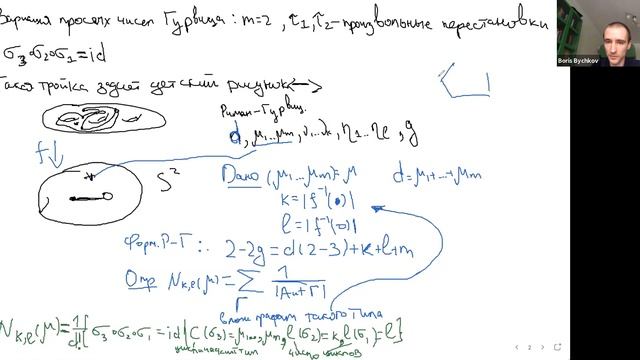 Вариация простых чисел Гурвица: m=2, τ₁,τ₂-произвольные перестановки
σ₃∘σ₂∘σ₁=id
Такая тройка задаёт детский рисунок <—>
Риман-Гурвиц.
d, μ₁...μₘ, η₁...ηₑ, g
f↓
S²
Дано (μ₁...μₘ)=μ d=μ₁+...+μₘ
k=|f⁻¹(•)|
l=|f⁻¹(○)|
Форм. Р-Г: 2-2g=d(2-3)+k+l+m
Опр N_{k,l}(μ)=∑_Γ 1/|Aut Γ|
влож графам такого типа
N_{k,l}(μ)=1/d! |{σ₃∘σ₂∘σ₁=id | C(σ₃)=μ₁,...,μₘ, l(σ₂)=k, l(σ₁)=l}|
циклический тип число циклов
Boris Bychkov
2